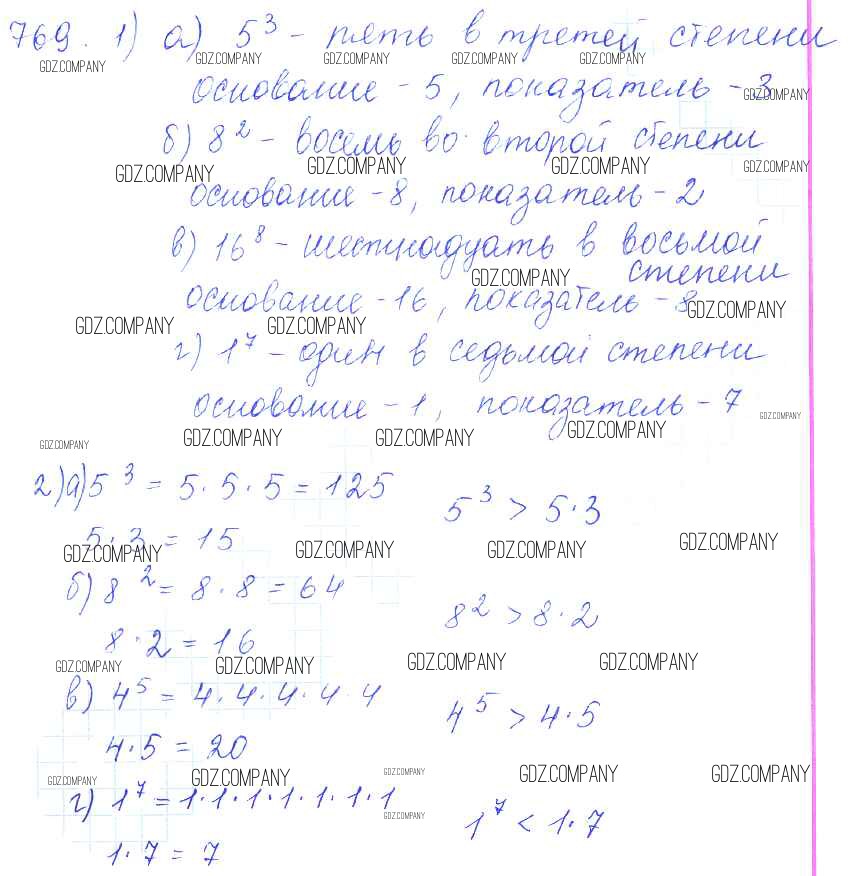 769. 1) а) 5³ - пять в третей степени
GDZ.COMPANY GDZ.COMPANY GDZ.COMPANY GDZ.COMPANY GDZ.COMPANY
основание - 5, показатель - 3
GDZ.COMPANY
б) 8² - восемь во второй степени
GDZ.COMPANY GDZ.COMPANY GDZ.COMPANY GDZ.COMPANY
основание - 8, показатель - 2
в) 16⁸ - шестнадцать в восьмой
степени
GDZ.COMPANY
основание - 16, показатель - 8
GDZ.COMPANY GDZ.COMPANY GDZ.COMPANY
г) 1⁷ - один в седьмой степени
основание - 1, показатель - 7
GDZ.COMPANY
GDZ.COMPANY GDZ.COMPANY GDZ.COMPANY GDZ.COMPANY
2) а) 5³ = 5·5·5 = 125 5³ > 5·3
5·3 = 15
GDZ.COMPANY GDZ.COMPANY GDZ.COMPANY GDZ.COMPANY
б) 8² = 8·8 = 64 8² > 8·2
8·2 = 16
GDZ.COMPANY GDZ.COMPANY GDZ.COMPANY GDZ.COMPANY
в) 4⁵ = 4·4·4·4·4 4⁵ > 4·5
4·5 = 20
GDZ.COMPANY GDZ.COMPANY GDZ.COMPANY GDZ.COMPANY GDZ.COMPANY
г) 1⁷ = 1·1·1·1·1·1·1 1⁷ < 1·7
GDZ.COMPANY
1·7 = 7